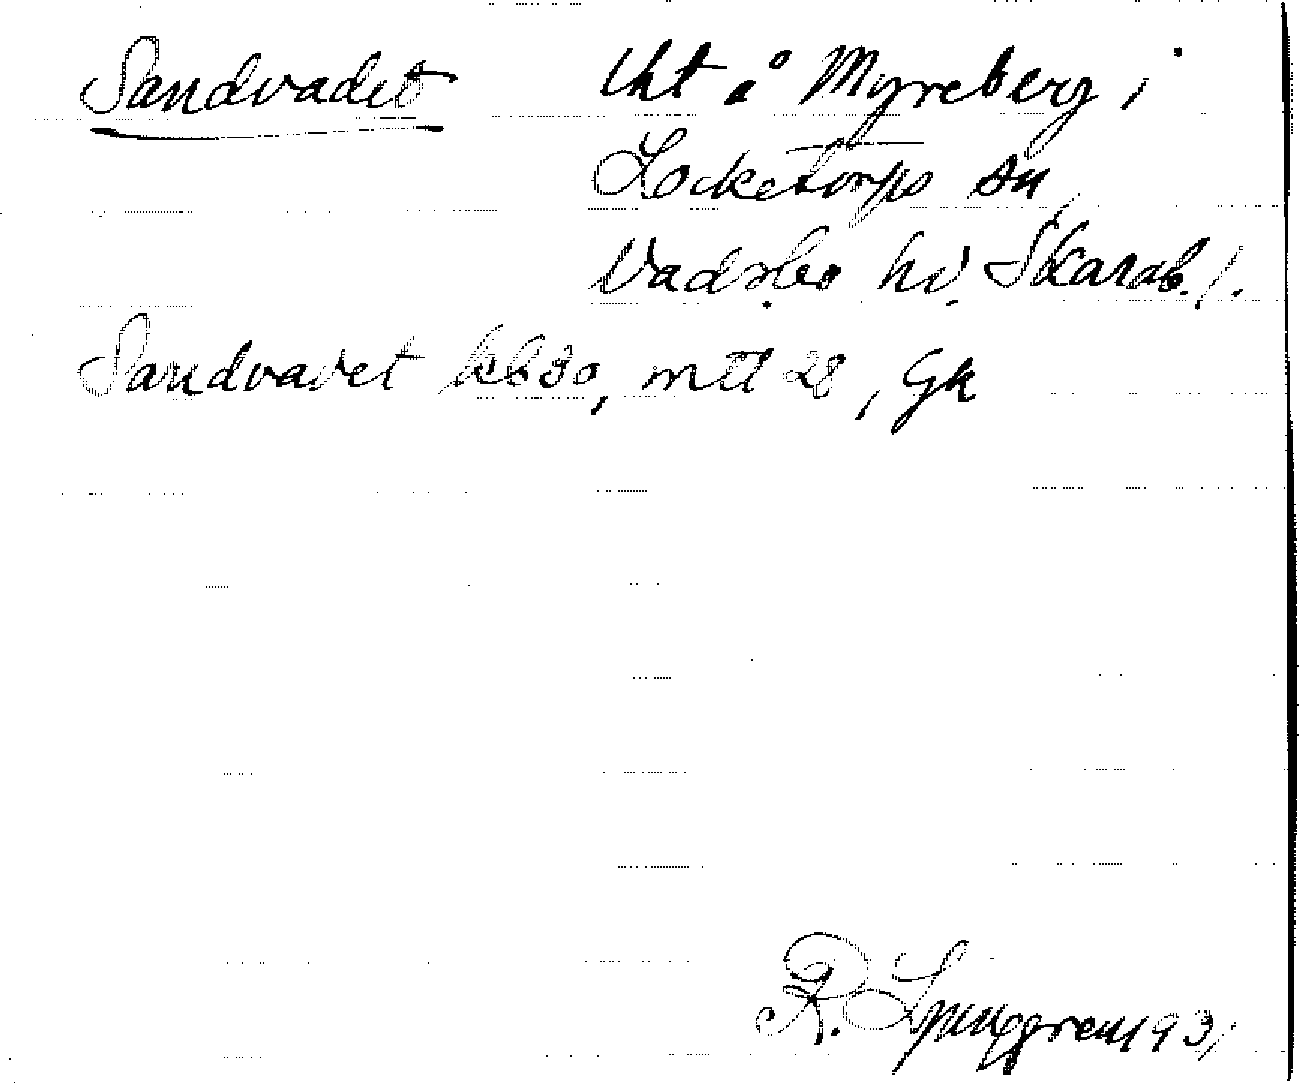 Sandvadet lht å Myreberg i
Locketorps sn
Vadsbo hd. Skarab. l.
Sandvavet kb 30, mtl 28, Gk
R. Ljunggren 1931